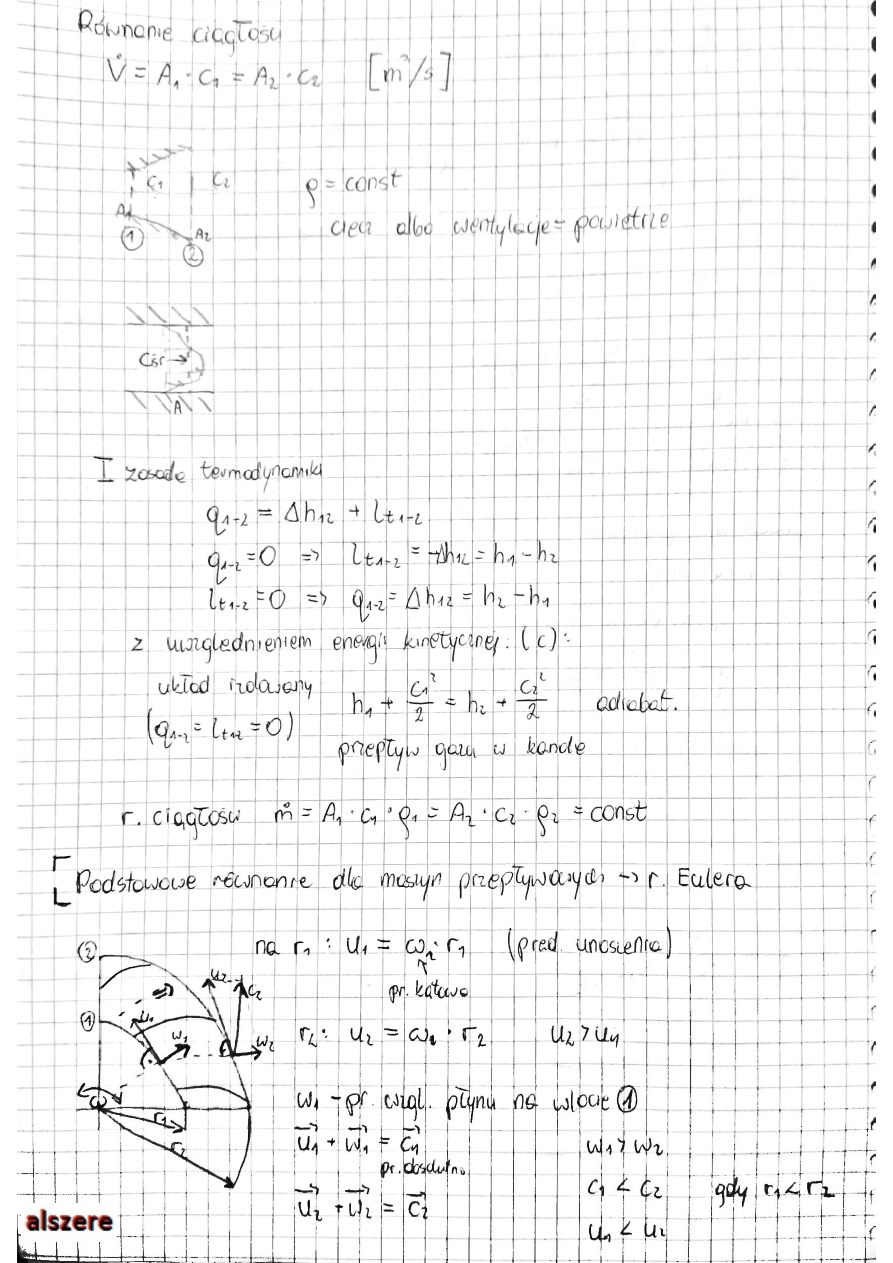 Równanie ciągłości
V̇ = A₁ · c₁ = A₂ · c₂ [m³/s]
c₁ c₂
A₁
A₂
① ②
ρ = const
ciecz albo wentylacje = powietrze
cśr →
A
I zasada termodynamiki
q₁₋₂ = Δh₁₂ + lt₁₋₂
q₁₋₂ = 0 => lt₁₋₂ = -Δh₁₂ = h₁ - h₂
lt₁₋₂ = 0 => q₁₋₂ = Δh₁₂ = h₂ - h₁
z uwzględnieniem energii kinetycznej (c):
układ izolowany
(q₁₋₂ = lt₁₂ = 0)
h₁ + c₁²/2 = h₂ + c₂²/2 adiabat.
przepływ gazu w kanale
r. ciągłości ṁ = A₁ · c₁ · ρ₁ = A₂ · c₂ · ρ₂ = const
Podstawowe równanie dla maszyn przepływowych → r. Eulera
na r₁ : u₁ = ω · r₁ (pręd. unoszenia)
pr. kątowa
r₂: u₂ = ω · r₂ u₂ > u₁
② ①
u₂ c₂ w₂
u₁ w₁
ω r₁ r₂
w₁ - pr. wzgl. płynu na wlocie ①
u₁ + w₁ = c₁
pr. absolutna
u₂ + w₂ = c₂
w₁ > w₂
c₁ < c₂ gdy r₁ < r₂
u₁ < u₂
alszere